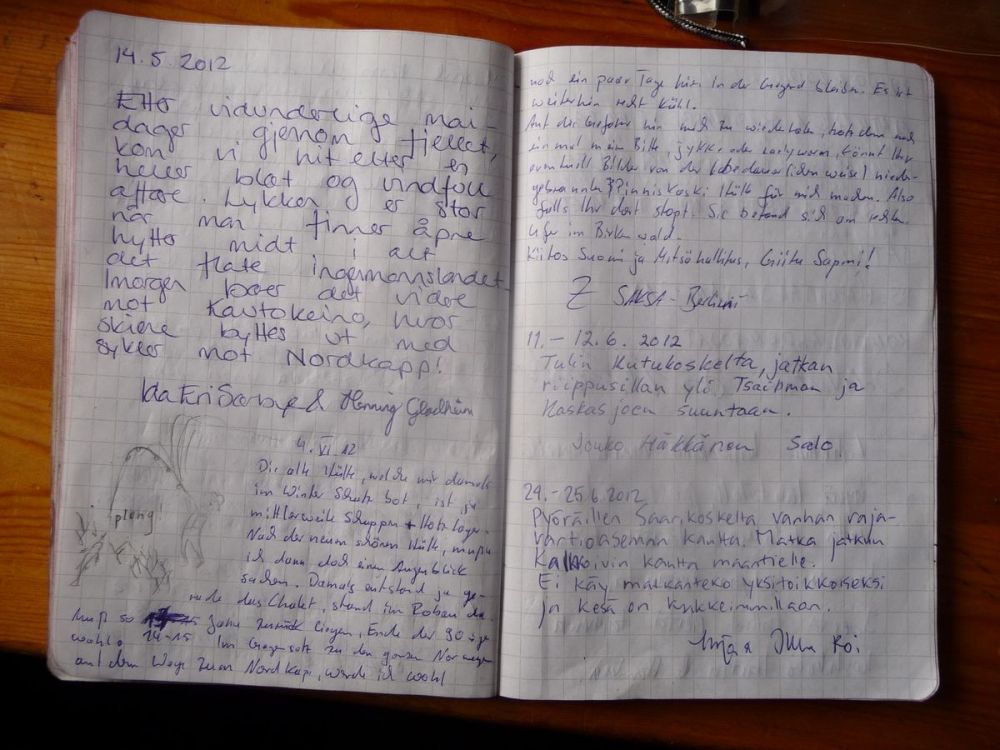 14.5.2012
Etter vidunderlige mai-
dager gjennom fjellet,
kom vi hit etter ei
heller bløt og vindfull
affære. Lykken er stor
når man finner åpne
hytter midt i alt
det flate ingenmannslandet.
Imorgen bær det videre
mot Kautokeino, hvor
skiene byttes ut med
sykler mot Nordkapp!
Ida Eri & Henning Gladheim
4. VI 12
Die alte Hütte, welche mir damals
im Winter Schutz bot, ist ja
mittlerweile Schuppen + Holzlager.
Nach der neuen schönen Hütte, mußte
plong
ich dann doch einen Augenblick
suchen. Damals entstand ja ge-
rade das Chalet, stand im Rohbau da.
Muß so Jahre zurück liegen, Ende der 90-ger
wohl. 14-15 Im Gegensatz zu den ganzen Norwegern
auf dem Wege zum Nordkap, werde ich wohl
noch ein paar Tage hier in der Gegend bleiben. Es ist
weiterhin recht kühl.
Auf die Gefahr hin mich zu wiederholen, trotzdem noch
einmal meine Bitte, könnt Ihr
eventuell Bilder von der niede-
gebrannten Hütte für mich machen. Also
falls Ihr dort stopt. Sie befand sich am rechten
Ufer im Birkenwald.
Kiitos Suomi ja Metsähallitus, Giitu Sapmi!
Z SAKSA - Berliini
11. – 12.6. 2012
Tulin Kutukoskelta, jatkan
riippusillan yli Tsaipman ja
Kaskasjoen suuntaan.
Jouko Häkkänen Salo.
24.-25.6.2012
Pyöräillen Saarikoskelta vanhan raja-
vartioaseman kautta. Matka jatkuu
Kalkkoivin kautta maantielle.
Ei käy matkanteko yksitoikkoiseksi
ja kesä on kukkeimmillaan.